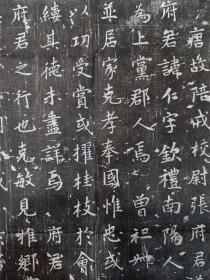 唐故陪戎校尉張府君
府君諱仁字欽禮南陽人
為上黨郡人焉曾祖
並居家克孝奉國惟忠或
以功受賞或擢桂枝於會
縷其德未盡詳焉府君
府君之行也克敏見雅鄉